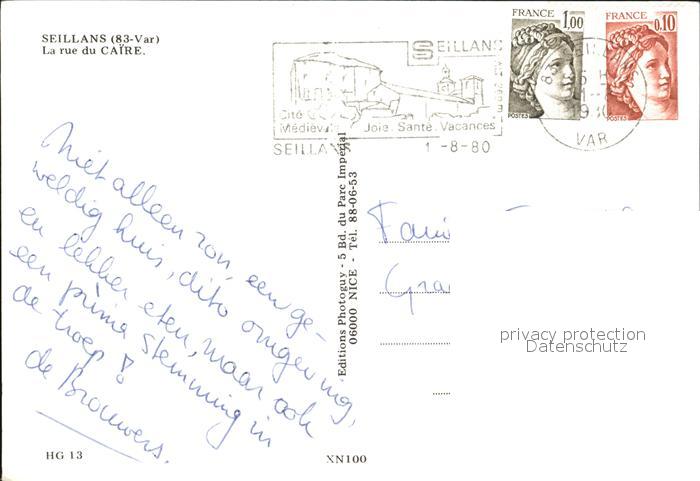 SEILLANS (83-Var)
La rue du CAÏRE.
SEILLANS
Cité
Médiévale
Joie. Santé. Vacances
SEILLANS
1 -8-80
FRANCE
1,00
POSTES
FRANCE
0,10
POSTES
VAR
Niet alleen zon, een ge-
weldig huis, dito omgeving,
en lekker eten, maar ook
een prima stemming in
de troep!
de Brouwers.
Editions Photoguy - 5 Bd. du Parc Impérial
06000 NICE - Tél. 88-06-53
privacy protection
Datenschutz
HG 13
XN100